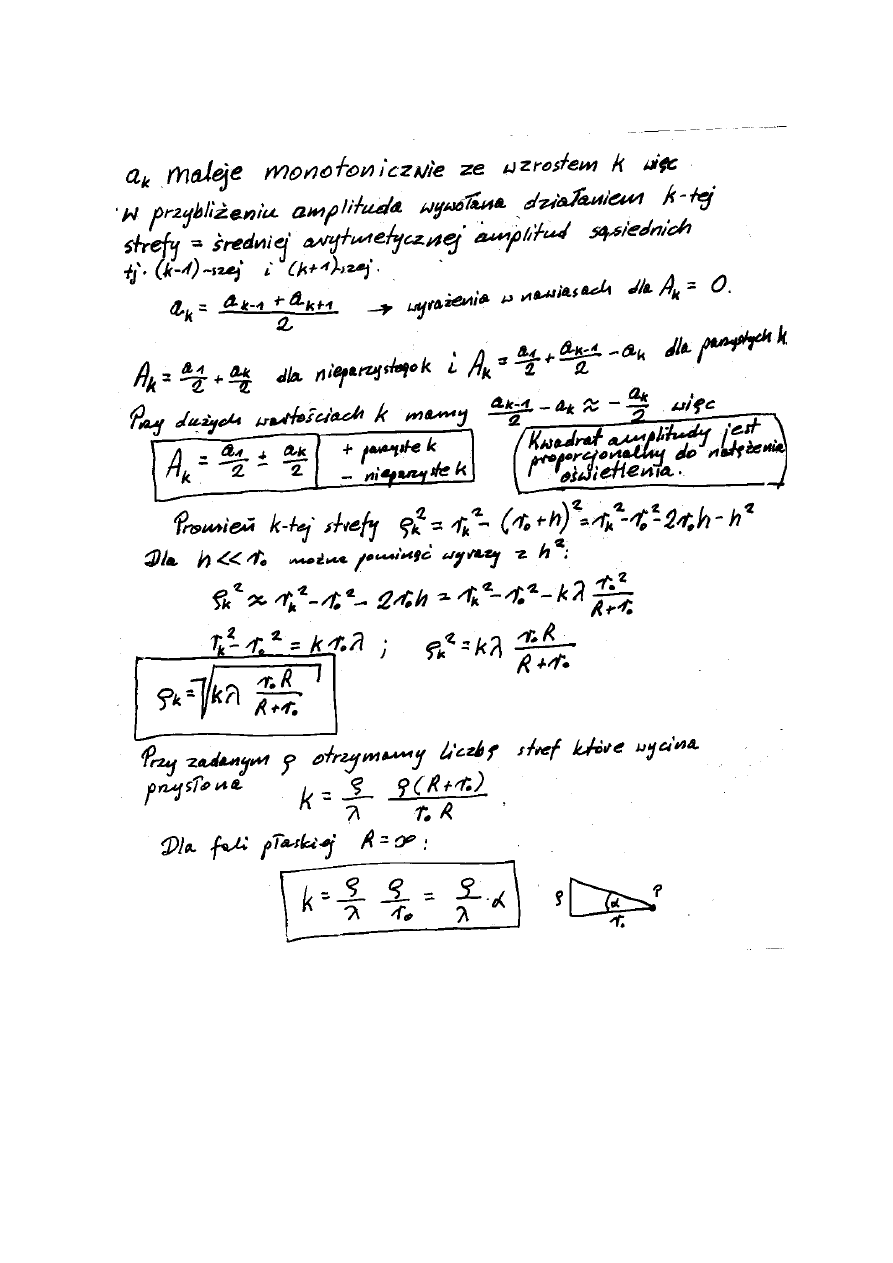 a_k maleje monotonicznie ze wzrostem k więc
w przybliżeniu amplituda wywołana działaniem k-tej
strefy = średniej arytmetycznej amplitud sąsiednich
tj. (k-1)-szej i (k+1)-szej.
a_k = (a_{k-1} + a_{k+1})/2 → wyrażenia w nawiasach dla A_k = 0.
A_k = a_1/2 + a_k/2 dla nieparzystego k i A_k = a_1/2 + a_{k-1}/2 - a_k dla parzystych k
Przy dużych wartościach k mamy a_{k-1}/2 - a_k ≈ - a_k/2 więc
A_k = a_1/2 ± a_k/2
+ parzyste k
- nieparzyste k
Kwadrat amplitudy jest
proporcjonalny do natężenia
oświetlenia.
Promień k-tej strefy ρ_k² = r_k² - (r_0 + h)² = r_k² - r_0² - 2r_0h - h²
Dla h << r_0 można pominąć wyrazy z h²:
ρ_k² ≈ r_k² - r_0² - 2r_0h = r_k² - r_0² - kλ r_0²/(R+r_0)
r_k² - r_0² = k r_0 λ ; ρ_k² = kλ r_0R/(R+r_0)
ρ_k = √(kλ r_0R/(R+r_0))
Przy zadanym ρ otrzymamy liczbę stref które wycina
przysłona
k = ρ/λ ρ(R+r_0)/(r_0R)
Dla fali płaskiej R = ∞ :
k = ρ/λ ρ/r_0 = ρ/λ · α
ρ α P
r_0